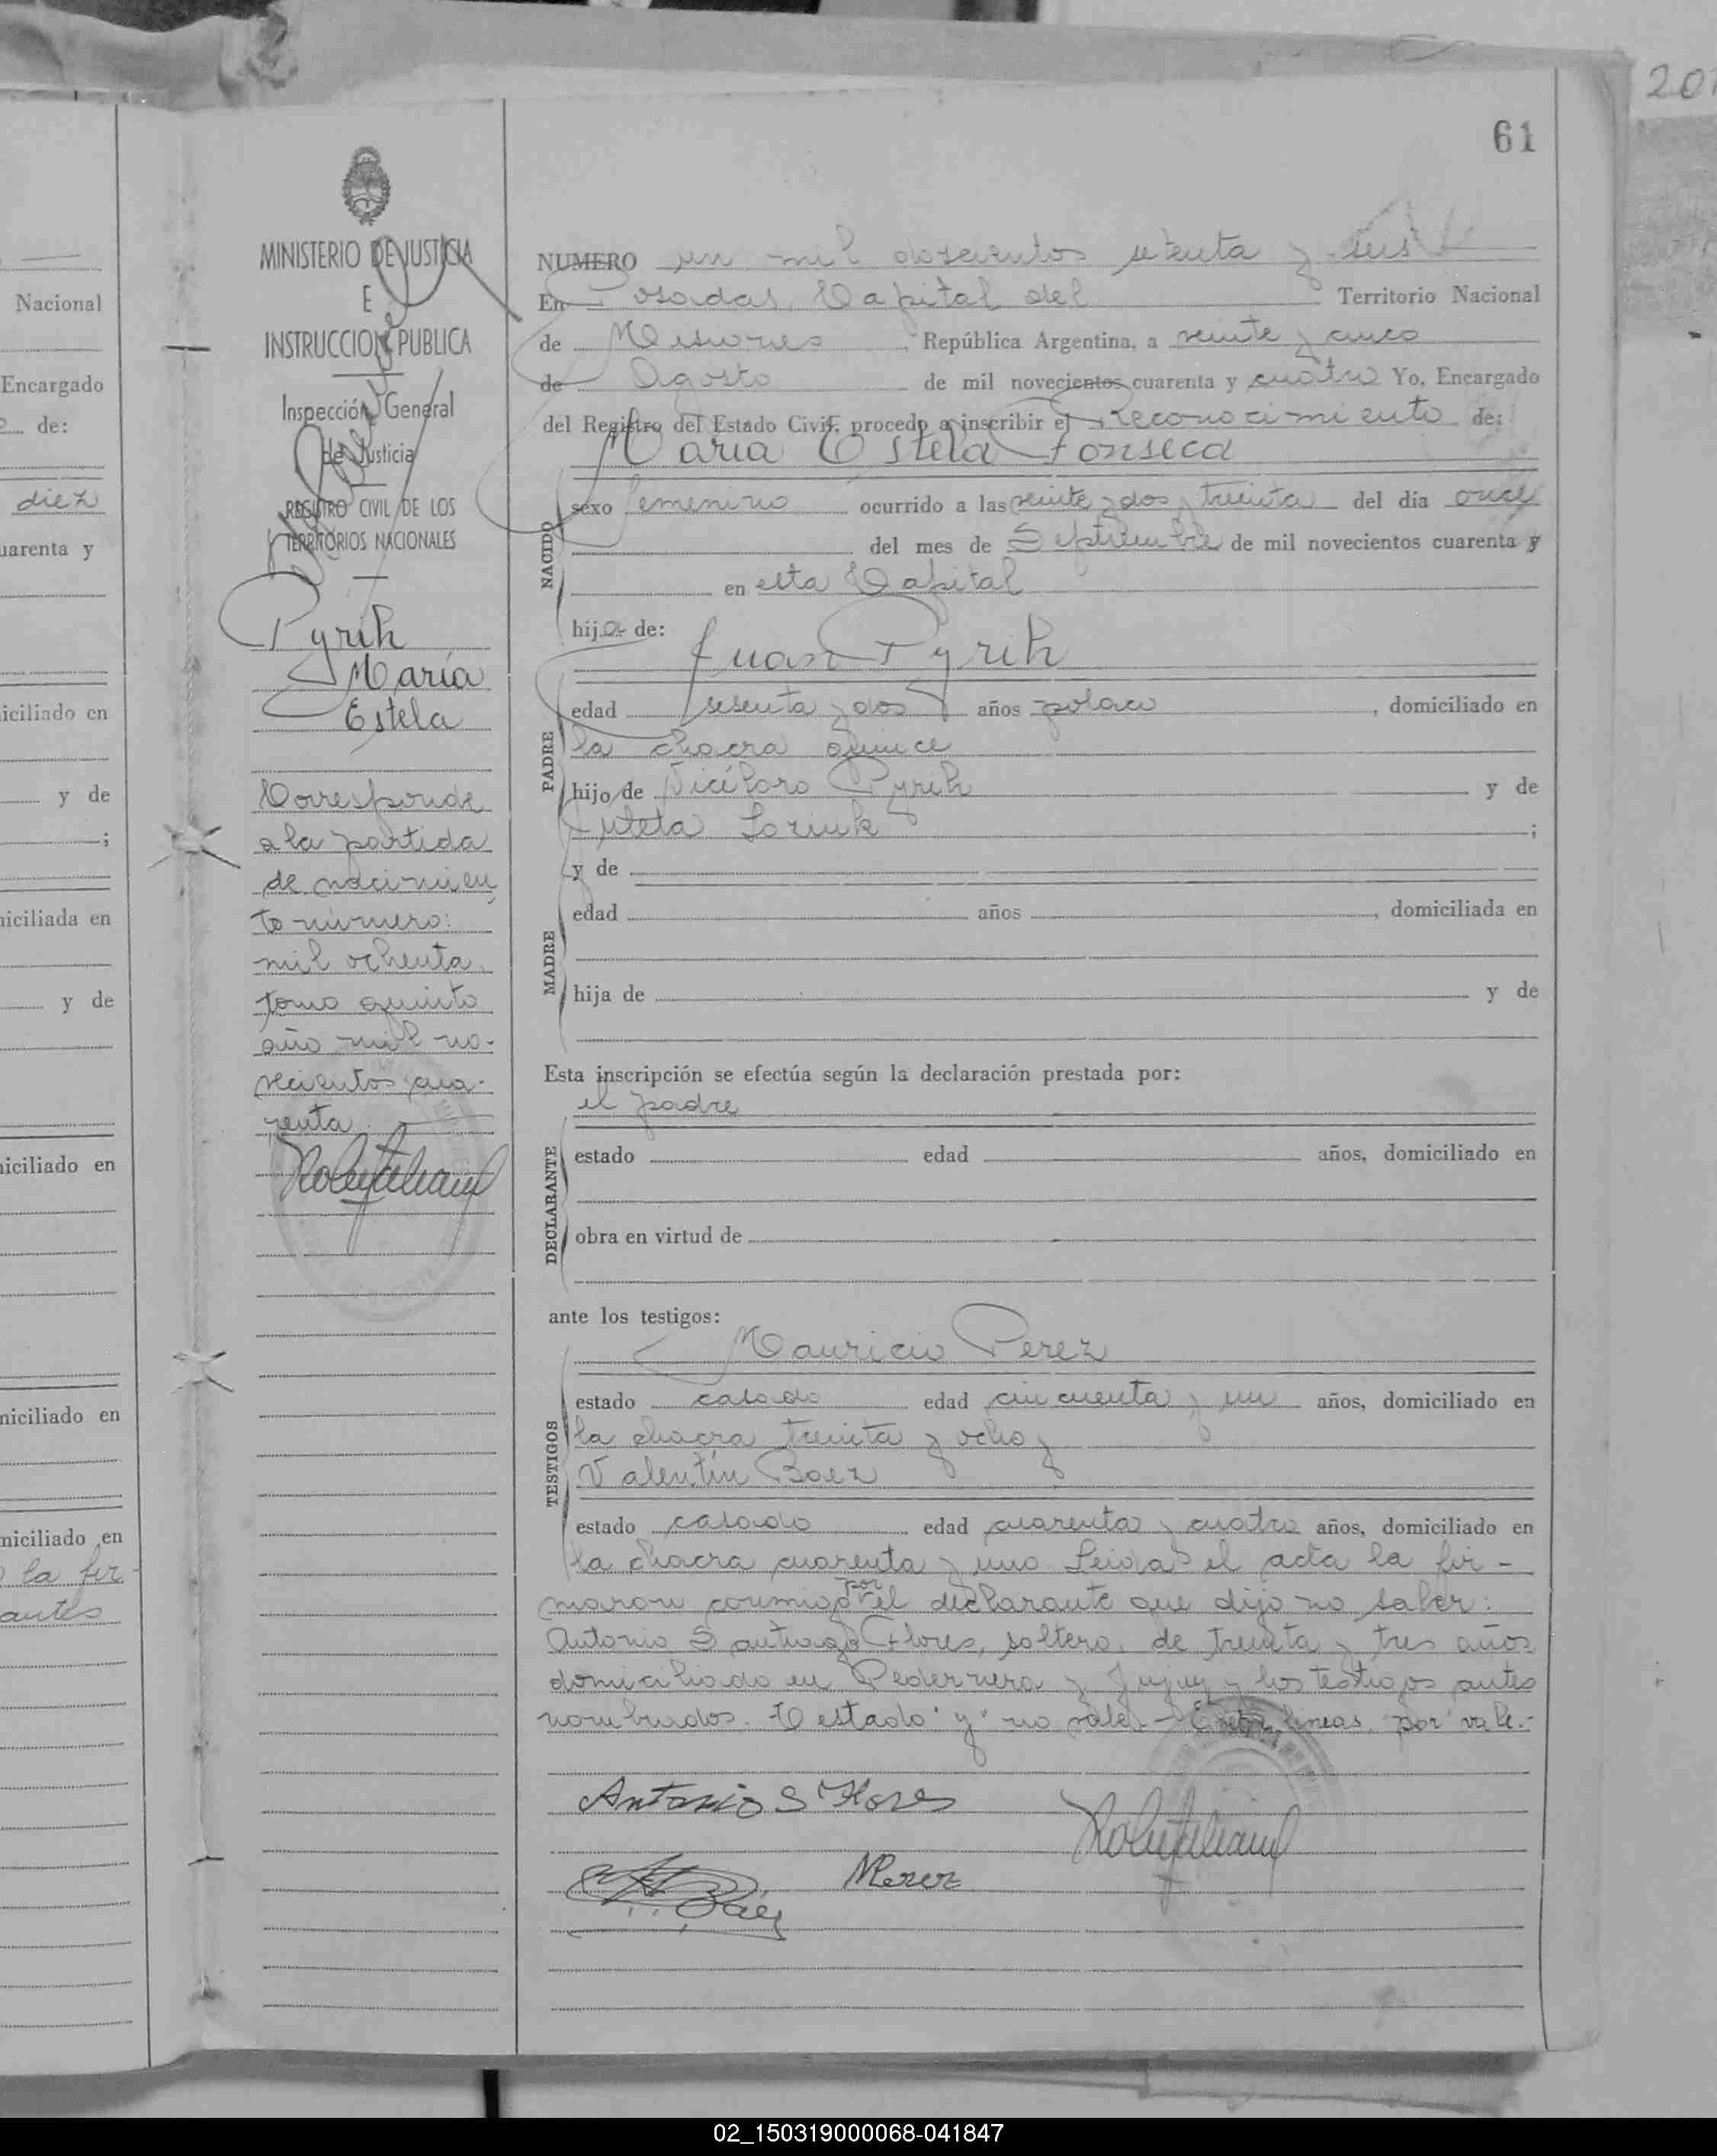 201
61
MINISTERIO DE JUSTICIA
E
INSTRUCCION PUBLICA
Inspección General
de Justicia
REGISTRO CIVIL DE LOS
TERRITORIOS NACIONALES
Reconocimiento
Pyrih
María
Estela
Corresponde
a la partida
de nacimien
to número:
mil ochenta
tomo quinto
año mil no-
vecientos cua-
renta.
NUMERO un mil doscientos setenta y seis
En Posadas, Capital del Territorio Nacional
de Misiones, República Argentina, a veinte y cinco
de Agosto de mil novecientos cuarenta y cuatro Yo, Encargado
del Registro del Estado Civil, procedo a inscribir el Reconocimiento de:
María Estela Fonseca
NACIDO
sexo femenino ocurrido a las veinte y dos y treinta del día once
del mes de Septiembre de mil novecientos cuarenta y
en esta Capital
hija de:
Juan Pyrih
PADRE
edad sesenta y dos años polaco, domiciliado en
la chacra quince
hijo de Nicéforo Pyrih y de
Loziuk;
y de
MADRE
edad años, domiciliada en
hija de y de
Esta inscripción se efectúa según la declaración prestada por:
el padre
DECLARANTE
estado edad años, domiciliado en
obra en virtud de
ante los testigos:
Mauricio Perez
TESTIGOS
estado casado edad cincuenta y un años, domiciliado en
la chacra treinta y ocho y
Valentín Baez
estado casado edad cuarenta y cuatro años, domiciliado en
la chacra cuarenta y uno. Leida el acta la fir-
maron conmigo por el declarante que dijo no saber:
Antonio Santiago Flores, soltero, de treinta y tres años
domiciliado en Pedernera y Jujuy y los testigos antes
nombrados. Testado "y" no vale - Entre lineas, por vale.-
Antonio S Flores
MPerez
Báez
Nacional
Encargado
de:
diez
uarenta y
iciliado en
y de
;
niciliada en
y de
niciliado en
niciliado en
niciliado en
la fir
antes
02_150319000068-041847